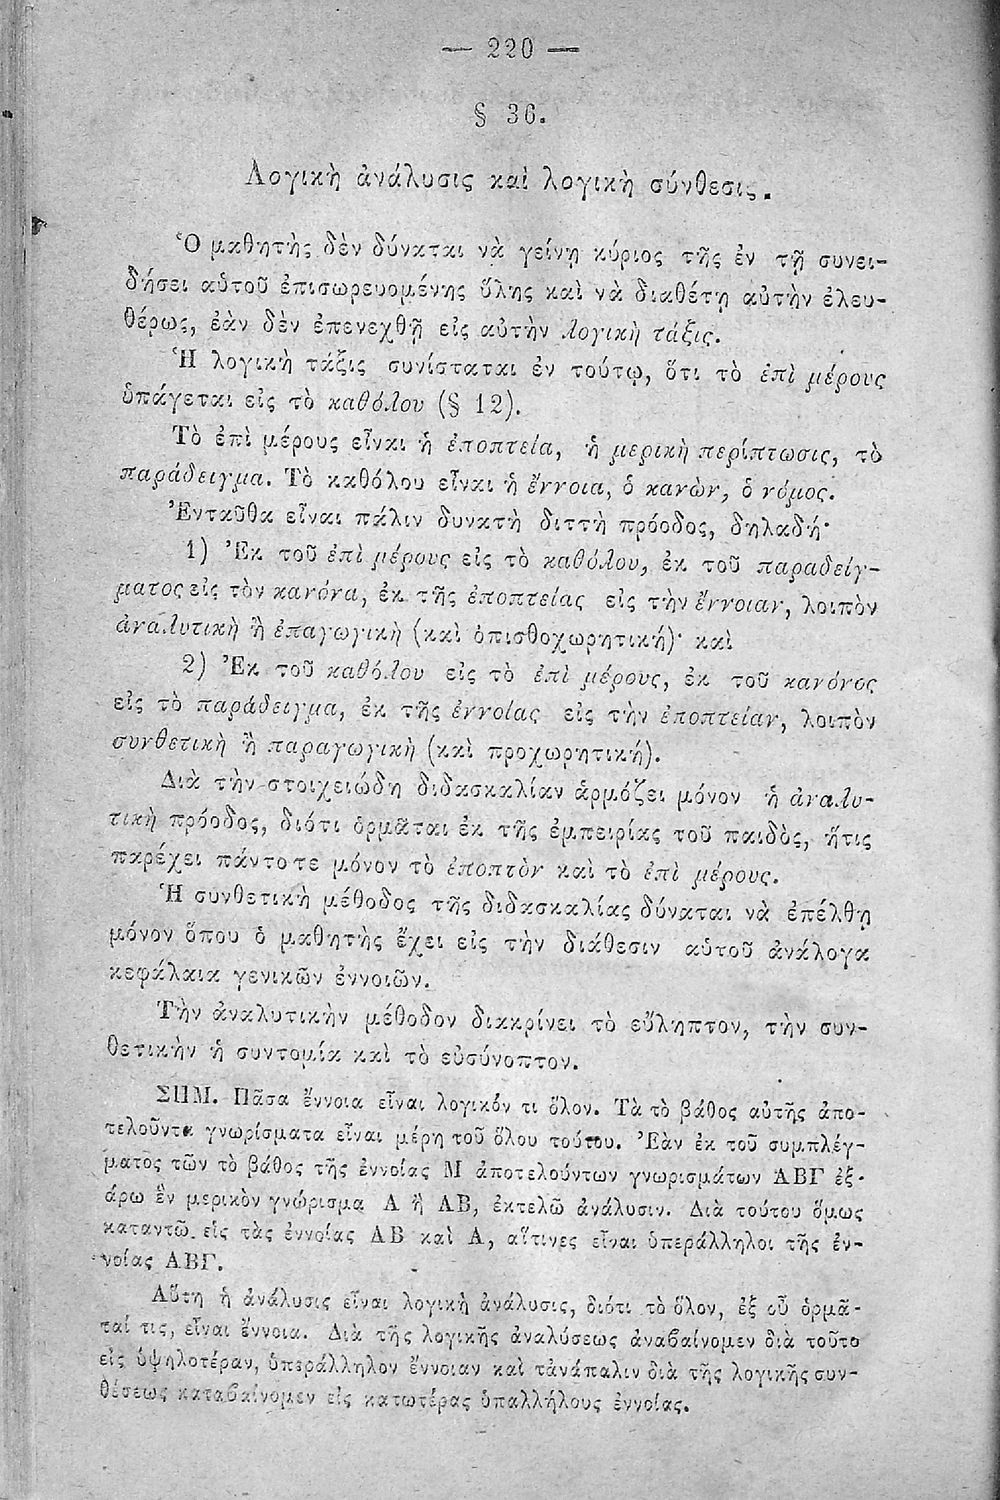 — 220 —
§ 36.
Λογικὴ ἀνάλυσις καὶ λογικὴ σύνθεσις.
Ὁ μαθητὴς δὲν δύναται νὰ γείνῃ κύριος τῆς ἐν τῇ συνει-
δήσει αὑτοῦ ἐπισωρευομένης ὕλης καὶ νὰ διαθέτῃ αὐτὴν ἐλευ-
θέρως, ἐὰν δὲν ἐπενεχθῇ εἰς αὐτὴν λογικὴ τάξις.
Ἡ λογικὴ τάξις συνίσταται ἐν τούτῳ, ὅτι τὸ ἐπὶ μέρους
ὑπάγεται εἰς τὸ καθόλου (§ 12).
Τὸ ἐπὶ μέρους εἶναι ἡ ἐποπτεία, ἡ μερικὴ περίπτωσις, τὸ
παράδειγμα. Τὸ καθόλου εἶναι ἡ ἔννοια, ὁ κανὼν, ὁ νόμος.
Ἐνταῦθα εἶναι πάλιν δυνατὴ διττὴ πρόοδος, δηλαδή·
1) Ἐκ τοῦ ἐπὶ μέρους εἰς τὸ καθόλου, ἐκ τοῦ παραδείγ-
ματος εἰς τὸν κανόνα, ἐκ τῆς ἐποπτείας εἰς τὴν ἔννοιαν, λοιπὸν
ἀναλυτικὴ ἢ ἐπαγωγικὴ (καὶ ὀπισθοχωρητική)· καὶ
2) Ἐκ τοῦ καθόλου εἰς τὸ ἐπὶ μέρους, ἐκ τοῦ κανόνος
εἰς τὸ παράδειγμα, ἐκ τῆς ἐννοίας εἰς τὴν ἐποπτείαν, λοιπὸν
συνθετικὴ ἢ παραγωγικὴ (καὶ προχωρητική).
Διὰ τὴν στοιχειώδη διδασκαλίαν ἁρμόζει μόνον ἡ ἀναλυ-
τικὴ πρόοδος, διότι ὁρμᾶται ἐκ τῆς ἐμπειρίας τοῦ παιδὸς, ἥτις
παρέχει πάντοτε μόνον τὸ ἐποπτὸν καὶ τὸ ἐπὶ μέρους.
Ἡ συνθετικὴ μέθοδος τῆς διδασκαλίας δύναται νὰ ἐπέλθῃ
μόνον ὅπου ὁ μαθητὴς ἔχει εἰς τὴν διάθεσιν αὑτοῦ ἀνάλογα
κεφάλαια γενικῶν ἐννοιῶν.
Τὴν ἀναλυτικὴν μέθοδον διακρίνει τὸ εὔληπτον, τὴν συν-
θετικὴν ἡ συντομία καὶ τὸ εὐσύνοπτον.
ΣΗΜ. Πᾶσα ἔννοια εἶναι λογικόν τι ὅλον. Τὰ τὸ βάθος αὐτῆς ἀπο-
τελοῦντα γνωρίσματα εἶναι μέρη τοῦ ὅλου τούτου. Ἐὰν ἐκ τοῦ συμπλέγ-
ματος τῶν τὸ βάθος τῆς ἐννοίας Μ ἀποτελούντων γνωρισμάτων ΑΒΓ ἐξ-
άρω ἓν μερικὸν γνώρισμα Α ἢ ΑΒ, ἐκτελῶ ἀνάλυσιν. Διὰ τούτου ὅμως
καταντῶ εἰς τὰς ἐννοίας ΑΒ καὶ Α, αἵτινες εἶναι ὑπεράλληλοι τῆς ἐν-
νοίας ΑΒΓ.
Αὕτη ἡ ἀνάλυσις εἶναι λογικὴ ἀνάλυσις, διότι τὸ ὅλον, ἐξ οὗ ὁρμᾶ-
ταί τις, εἶναι ἔννοια. Διὰ τῆς λογικῆς ἀναλύσεως ἀναβαίνομεν διὰ τοῦτο
εἰς ὑψηλοτέραν, ὑπεράλληλον ἔννοιαν καὶ τἀνάπαλιν διὰ τῆς λογικῆς συν-
θέσεως καταβαίνομεν εἰς κατωτέρας ὑπαλλήλους ἐννοίας.